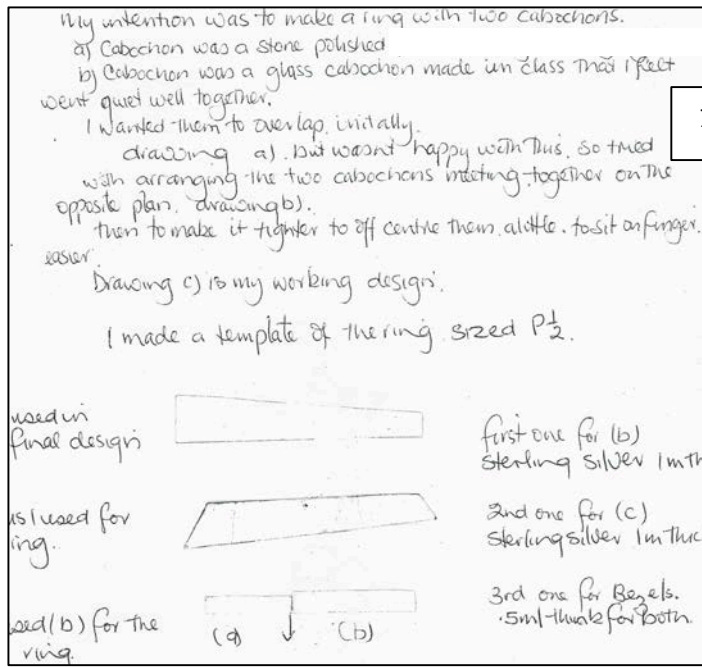 My intention was to make a ring with two cabochons.
a) Cabochon was a stone polished
b) Cabochon was a glass cabochon made in class that i felt
went quiet well together.
I wanted them to overlap initally.
drawing a). but wasnt happy with this, so tried
with arranging the two cabochons meeting together on the
opposite plan, drawing b).
then to make it tighter to off centre them alottle. to sit on finger.
easier.
Drawing c) is my working design.
I made a template of the ring sized P½.
used in
final design
first one for (b)
sterling silver 1m th
used for
ring.
2nd one for (c)
sterling silver 1m thic
3rd one for Bezels.
.5ml for both.
sed (b) for the
ring.
(a) (b)